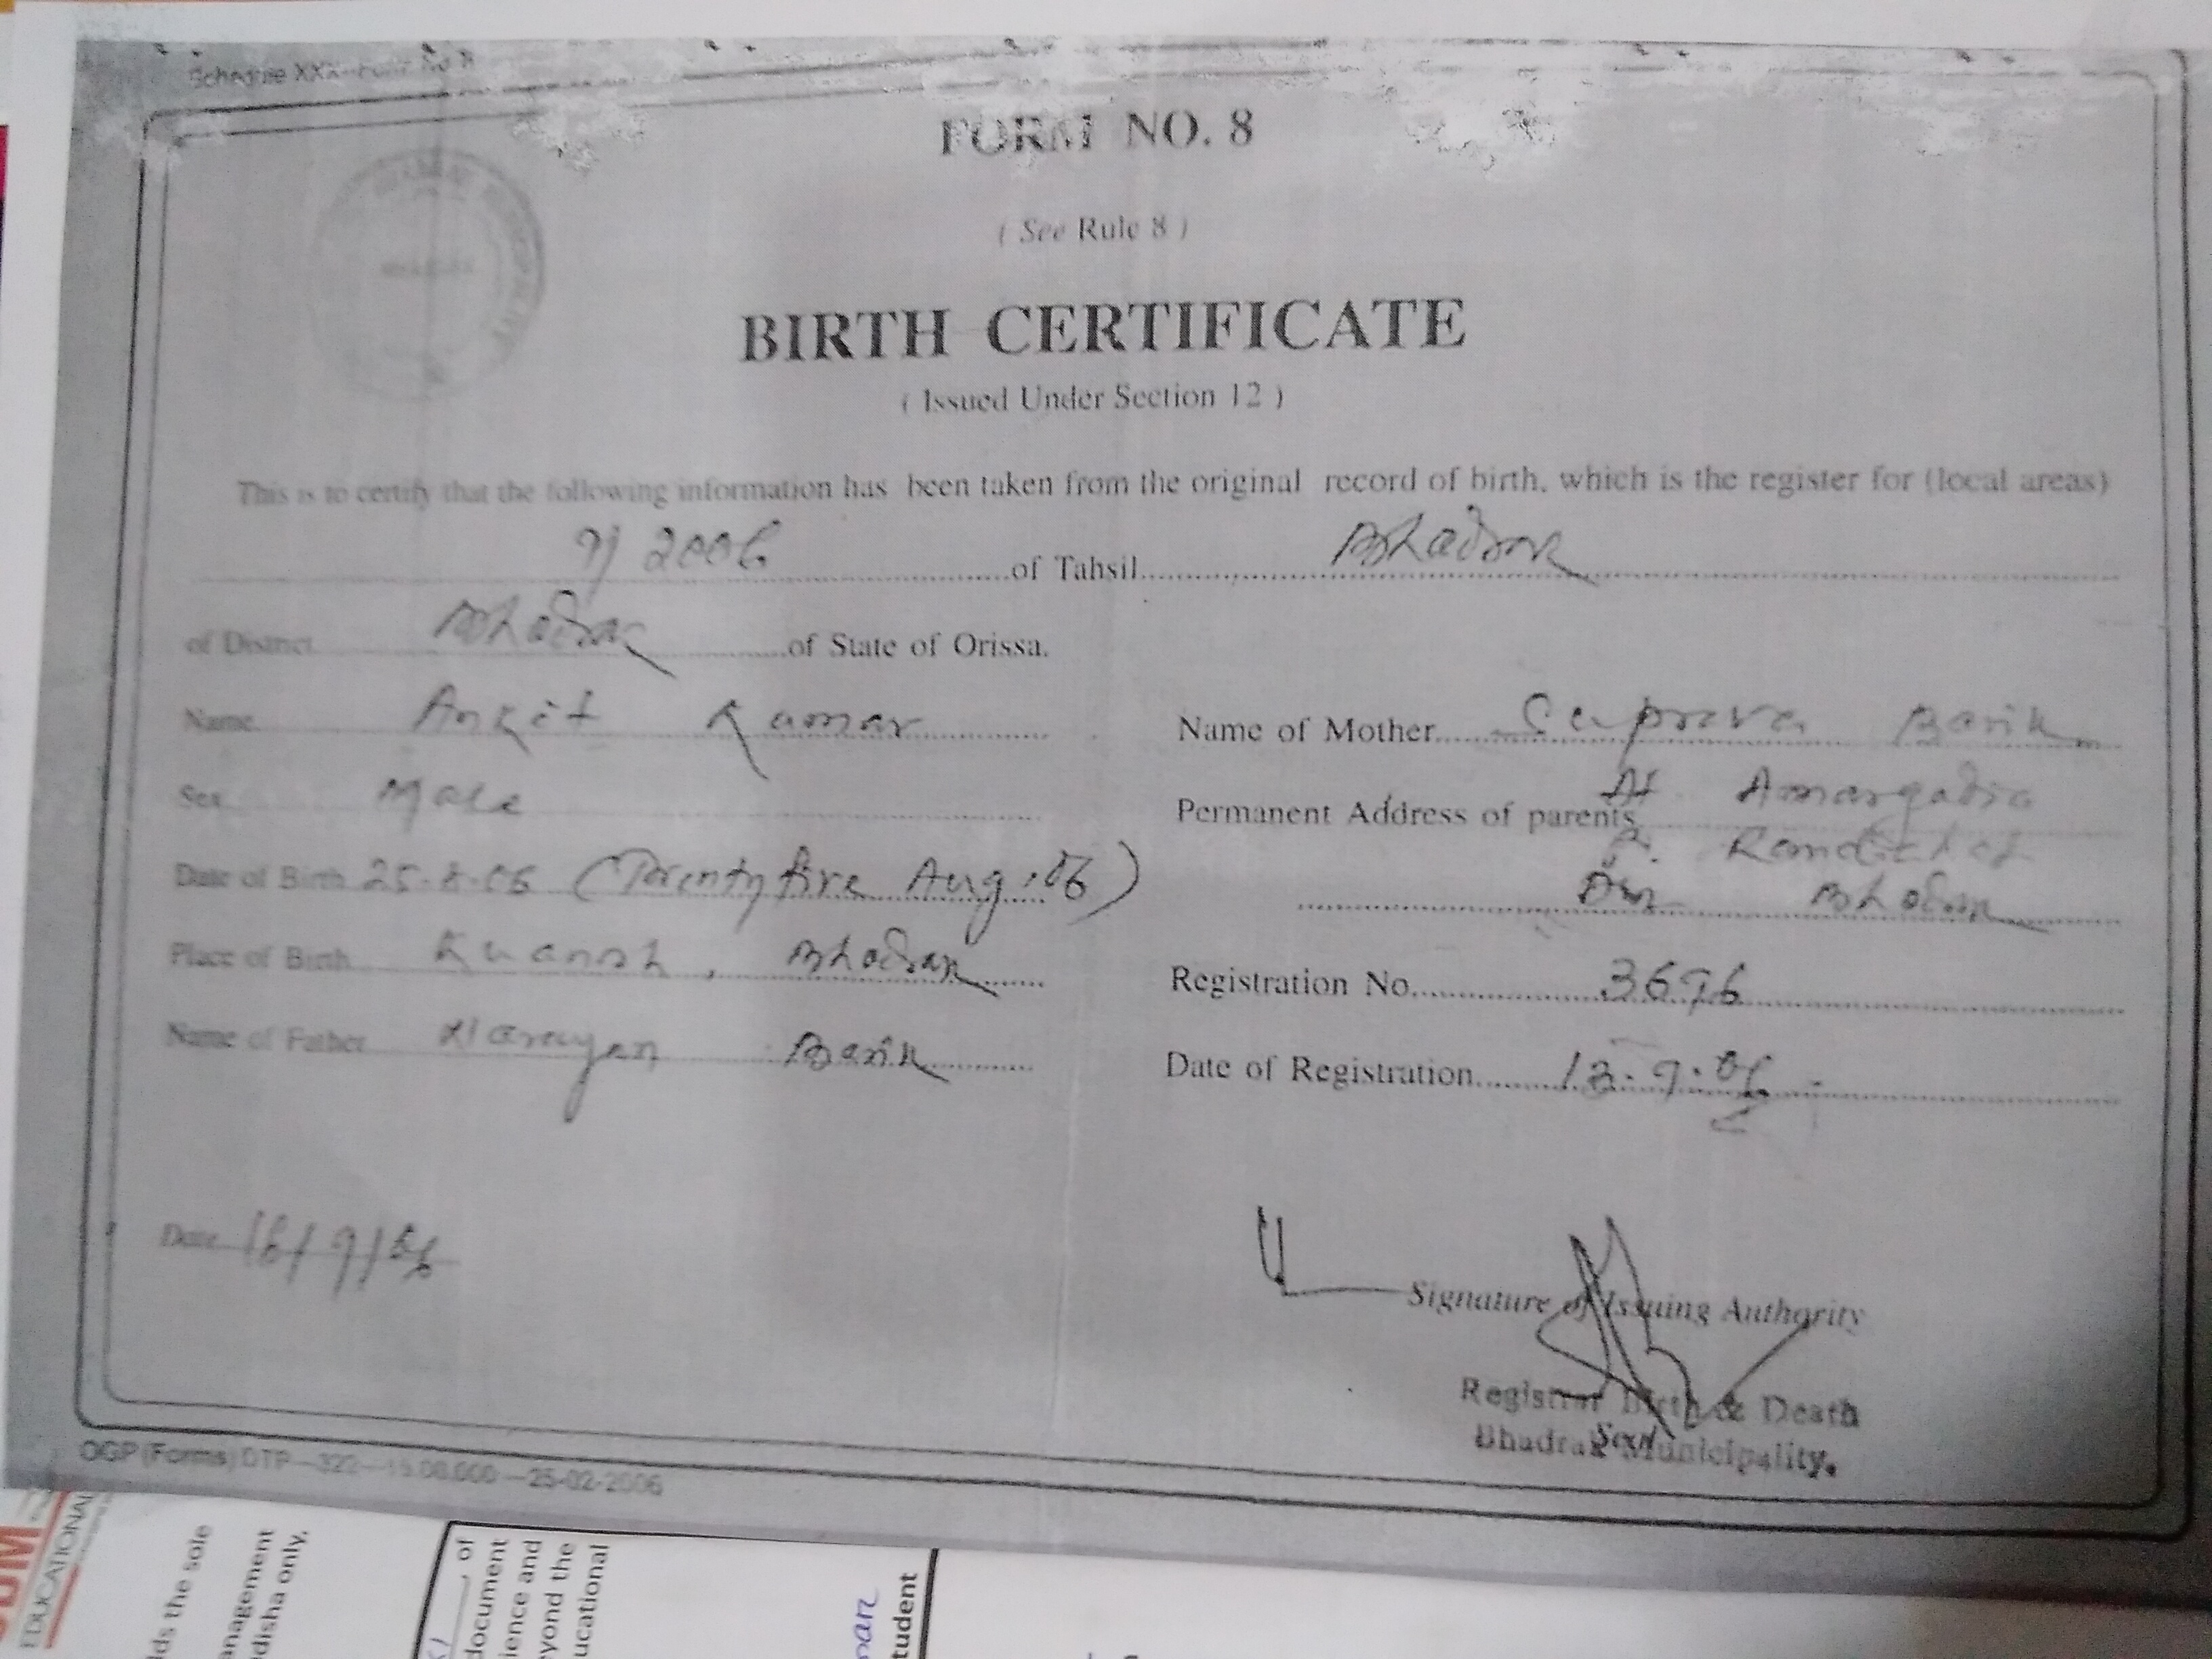 FORM NO. 8
( See Rule 8 )
BIRTH CERTIFICATE
( Issued Under Section 12 )
This is to certify that the following information has been taken from the original record of birth, which is the register for (local areas)
9/2006 of Tahsil Bhadrak
of District Bhadrak of State of Orissa.
Name Ankit Kumar
Sex Male
Date of Birth 25-8-06 (Twenty five Aug.06)
Place of Birth Kuansh, Bhadrak
Name of Father Narayan Barik
Name of Mother Suprava Barik
Permanent Address of parents At Amargadia
Bhadrak
Registration No. 3696
Date of Registration 13.9.06
Date 16/9/06
Signature of Issuing Authority
Registrar Birth & Death
Bhadrak Municipality.
OGP (Forms) DTP-322-15,00,000-25-02-2006
EDUCATIONAL
lds the sole
anagement
disha only.
, of
document
ience and
eyond the
ucational
tudent